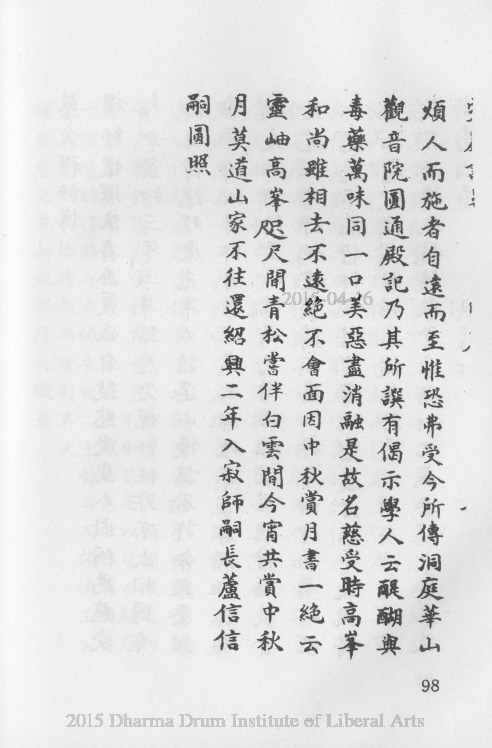 煩人而施者自遠而至惟恐弗受今所傳洞庭華山
觀音院圓通殿記乃其所譔有偈示學人云醍醐與
毒藥萬味同一口美惡盡消融是故名慈受時高峯
和尚雖相去不遠絶不會面因中秋賞月書一絶云
靈岫高峯咫尺間青松嘗伴白雲閒今宵共賞中秋
月莫道山家不往還紹興二年入寂師嗣長蘆信信
嗣圓照
98
2015-04-16
2015 Dharma Drum Institute of Liberal Arts